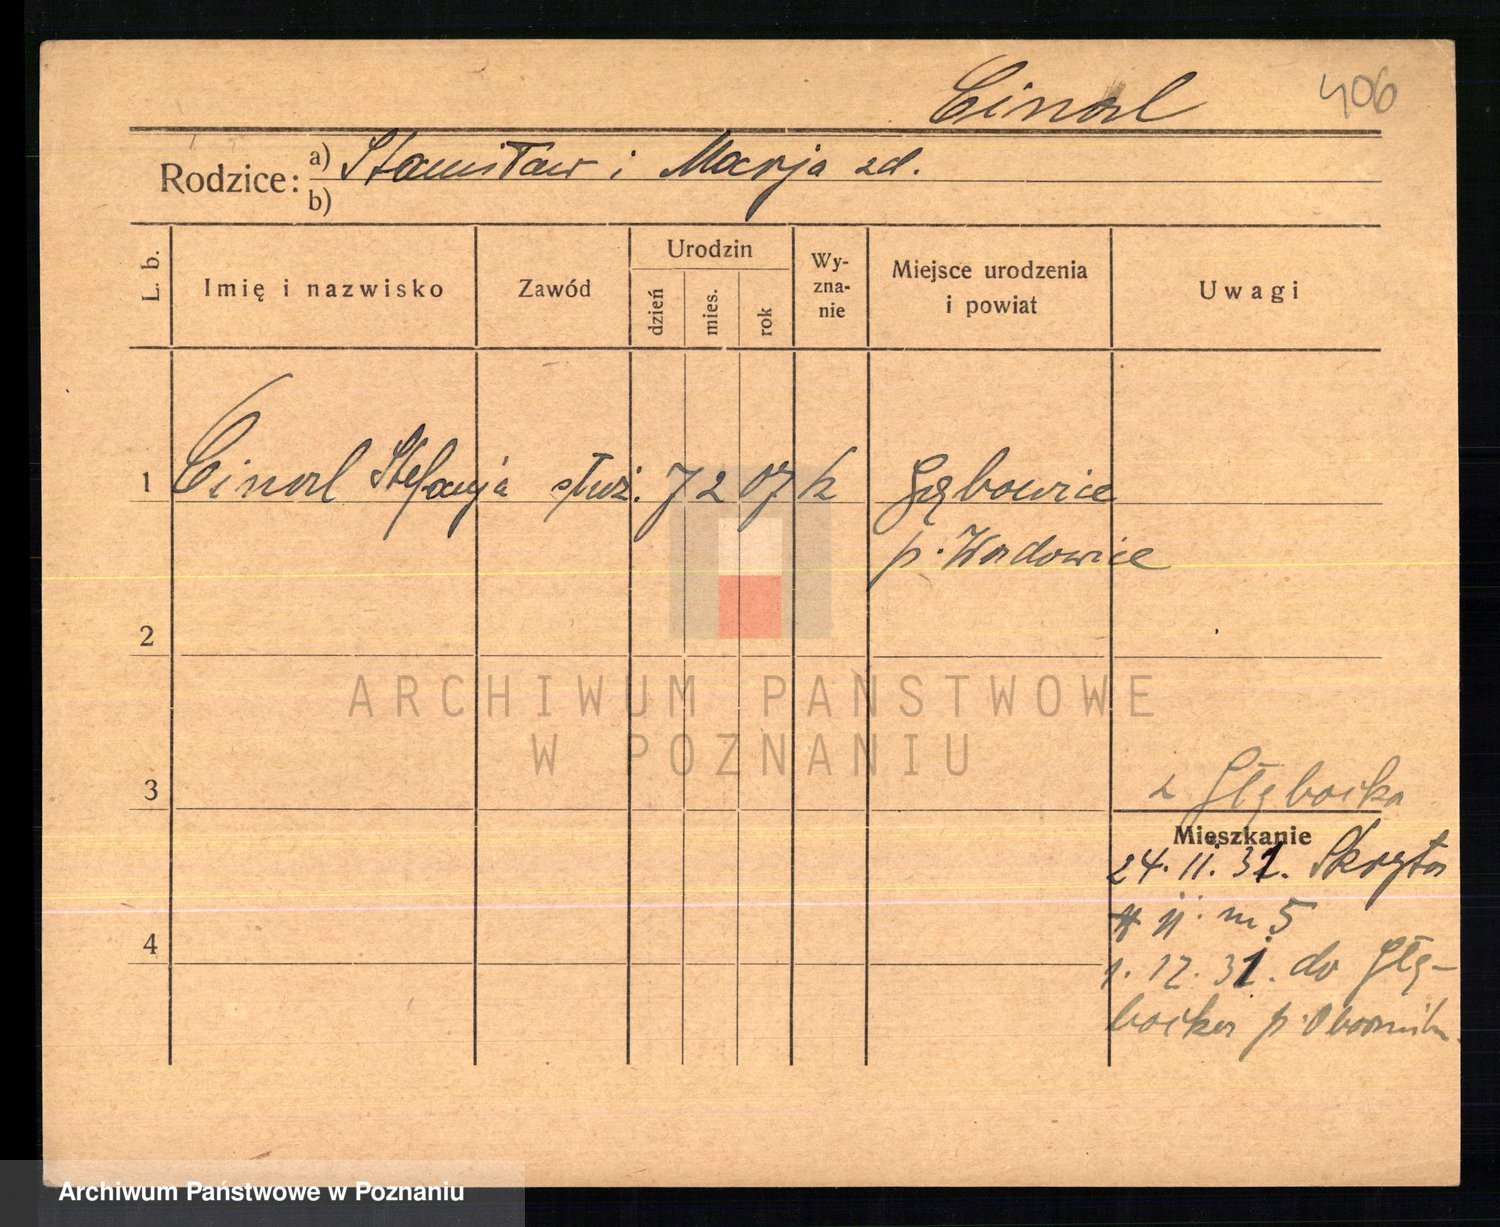 Cinal 406
Rodzice: a) Stanisław i Marja zd.
b)
L. b.
Imię i nazwisko
Zawód
Urodzin
dzień
mies.
rok
Wy-
zna-
nie
Miejsce urodzenia
i powiat
Uwagi
1 Cinal Stefanja służ. 7 2 07 k Gębowice
p. Wadowice
2
ARCHIWUM PAŃSTWOWE
W POZNANIU
3
z Głęboćka
Mieszkanie
24. 11. 31. Skryta
11. m 5
4
1. 12. 31. do Głę-
boćka p. Oborniki
Archiwum Państwowe w Poznaniu